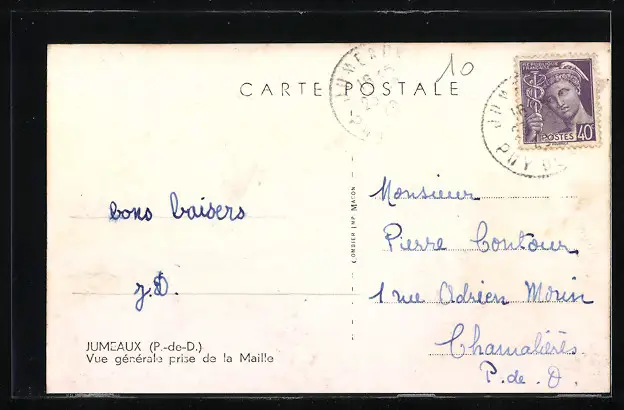 CARTE POSTALE
10
JUMEAUX
16
PUY DE
RÉPUBLIQUE FRANÇAISE
POSTES 40c
bons baisers
J.D.
Monsieur
Pierre Contour
1 rue Adrien Morin
Chamalières
P. de. D.
COMBIER IMP. MACON
JUMEAUX (P.-de-D.)
Vue générale prise de la Maille